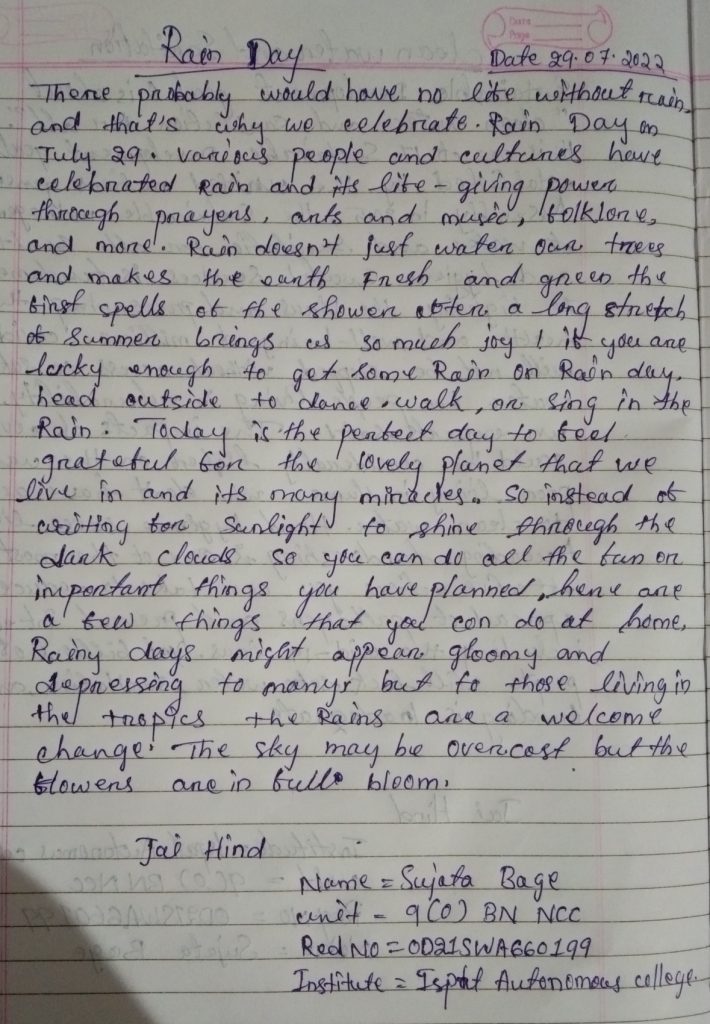 Date
Page
Rain Day
Date 29.07.2022
There probably would have no life without rain,
and that's why we celebrate. Rain Day on
July 29. various people and cultures have
celebrated Rain and its life-giving power
through prayers, arts and music, folklore,
and more. Rain doesn't just water our trees
and makes the earth Fresh and green the
first spells of the shower after a long stretch
of summer brings us so much joy! if you are
lucky enough to get some Rain on Rain day,
head outside to dance, walk, or sing in the
Rain. Today is the perfect day to feel
grateful for the lovely planet that we
live in and its many miracles. So instead of
waiting for sunlight to shine through the
dark clouds so you can do all the fun or
important things you have planned, here are
a few things that you can do at home.
Rainy days might appear gloomy and
depressing to many, but to those living in
the tropics the Rains are a welcome
change. The sky may be overcast but the
flowers are in full bloom.
Jai Hind
Name = Sujata Bage
unit = 9(O) BN NCC
Red No = OD21SWA660199
Institute = Ispat Autonomous college.